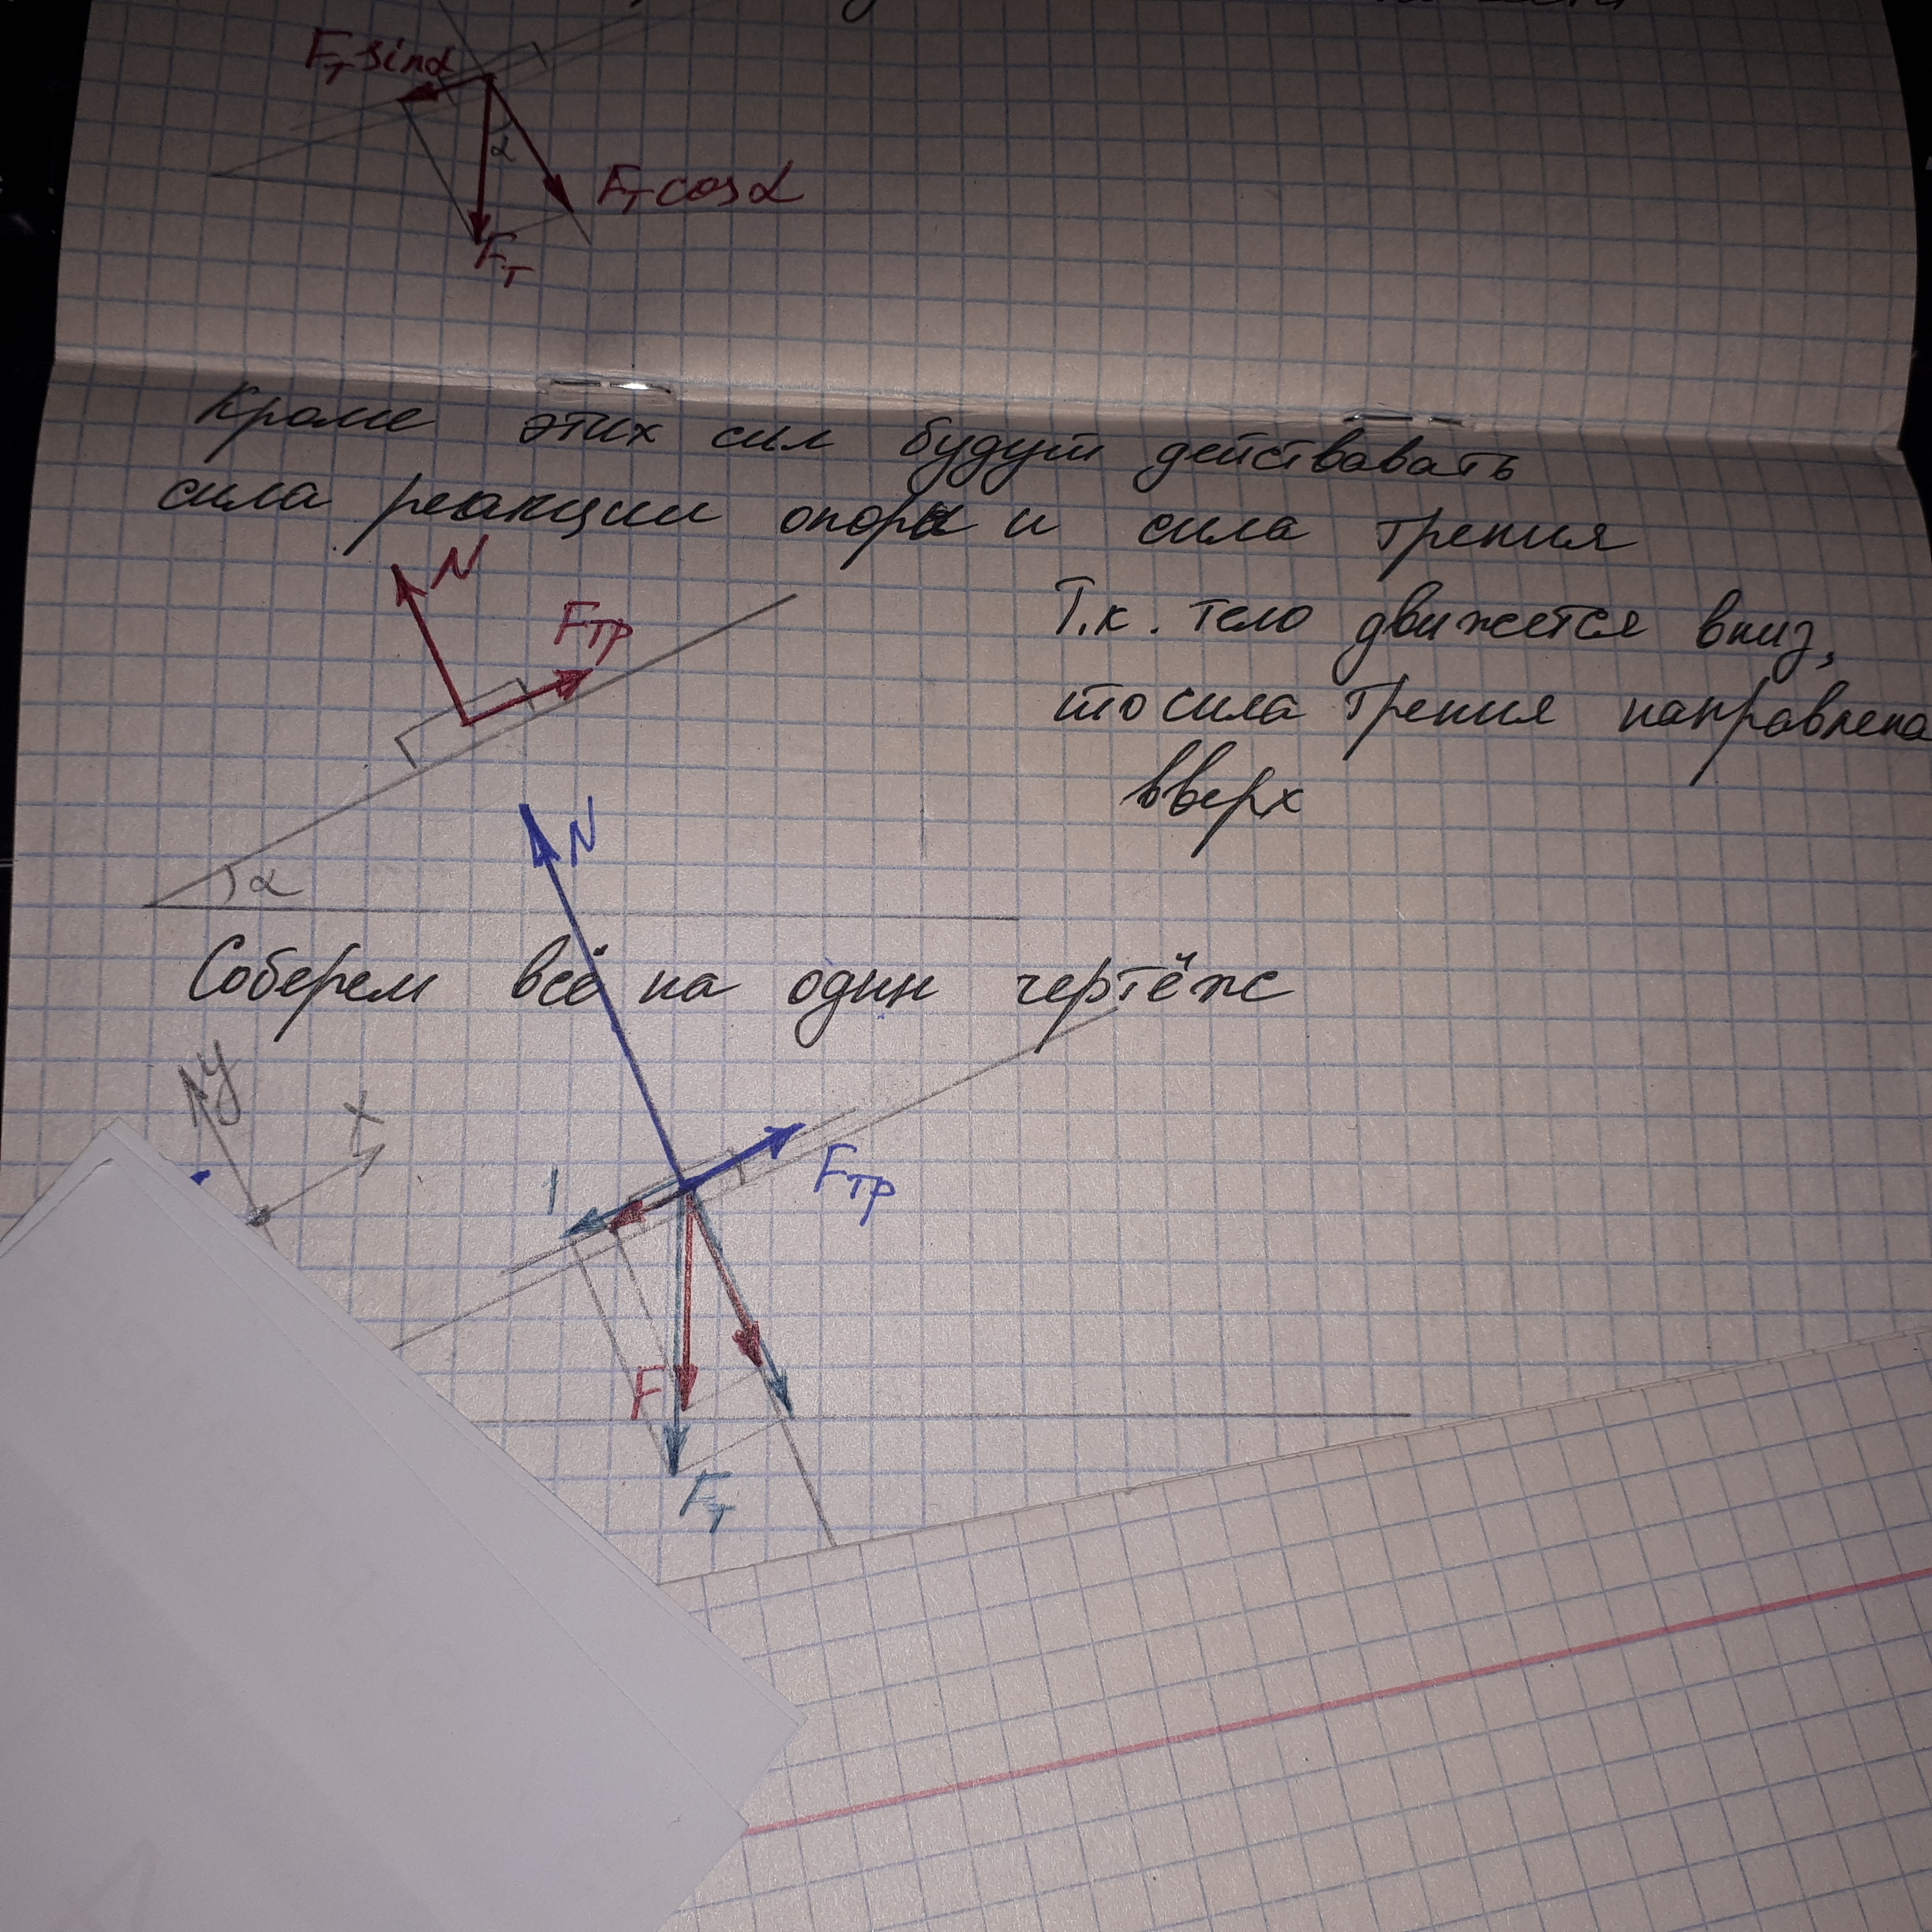 Fт sinα
α
Fт cosα
Fт
Кроме этих сил будут действовать
сила реакции опоры и сила трения
N
Fтр
Т.к. тело движется вниз,
то сила трения направлена
вверх
α
N
Соберем всё на один чертёж
y
x
1
Fтр
F
Fт